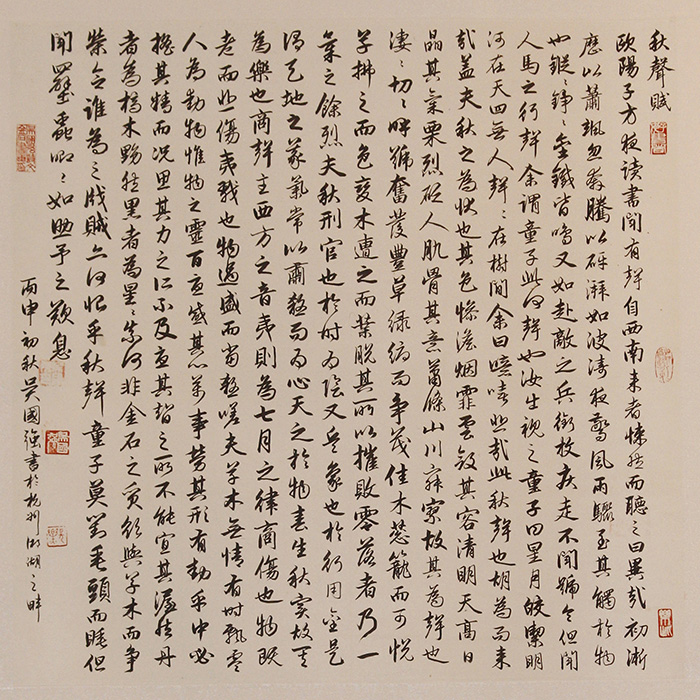 秋聲賦
歐陽子方夜讀書聞有聲自西南来者悚然而聽之曰異哉初淅
瀝以蕭颯忽奔騰以砰湃如波濤夜驚風雨驟至其觸於物
也鏦錚〻金鐵皆鳴又如赴敵之兵銜枚疾走不聞號令但聞
人馬之行聲余謂童子此何聲也汝出視之童子曰星月皎潔明
河在天四無人聲〻在樹間余曰噫嘻悲哉此秋聲也胡為而来
哉蓋夫秋之為狀也其色慘澹烟霏雲斂其容清明天高日
晶其氣栗烈砭人肌骨其意蕭條山川寂寥故其為聲也
淒〻切〻呼號奮發豐草綠縟而爭茂佳木葱籠而可悅
草拂之而色變木遭之而葉脫其所以摧敗零落者乃一
氣之餘烈夫秋刑官也於時為陰又兵象也於行用金是
謂天地之義氣常以肅殺而為心天之於物春生秋實故其
為樂也商聲主西方之音夷則為七月之律商傷也物既
老而悲傷夷戮也物過盛而當殺嗟夫草木無情有時飄零
人為動物惟物之靈百憂感其心萬事勞其形有動乎中必
搖其精而況思其力之所不及憂其智之所不能宜其渥然丹
者為槁木黟然黑者為星〻奈何非金石之質欲與草木而爭
榮念誰為之戕賊亦何恨乎秋聲童子莫對垂頭而睡但
聞四壁蟲唧〻如助予之歎息
丙申初秋吳國強書於杭州湘湖之畔